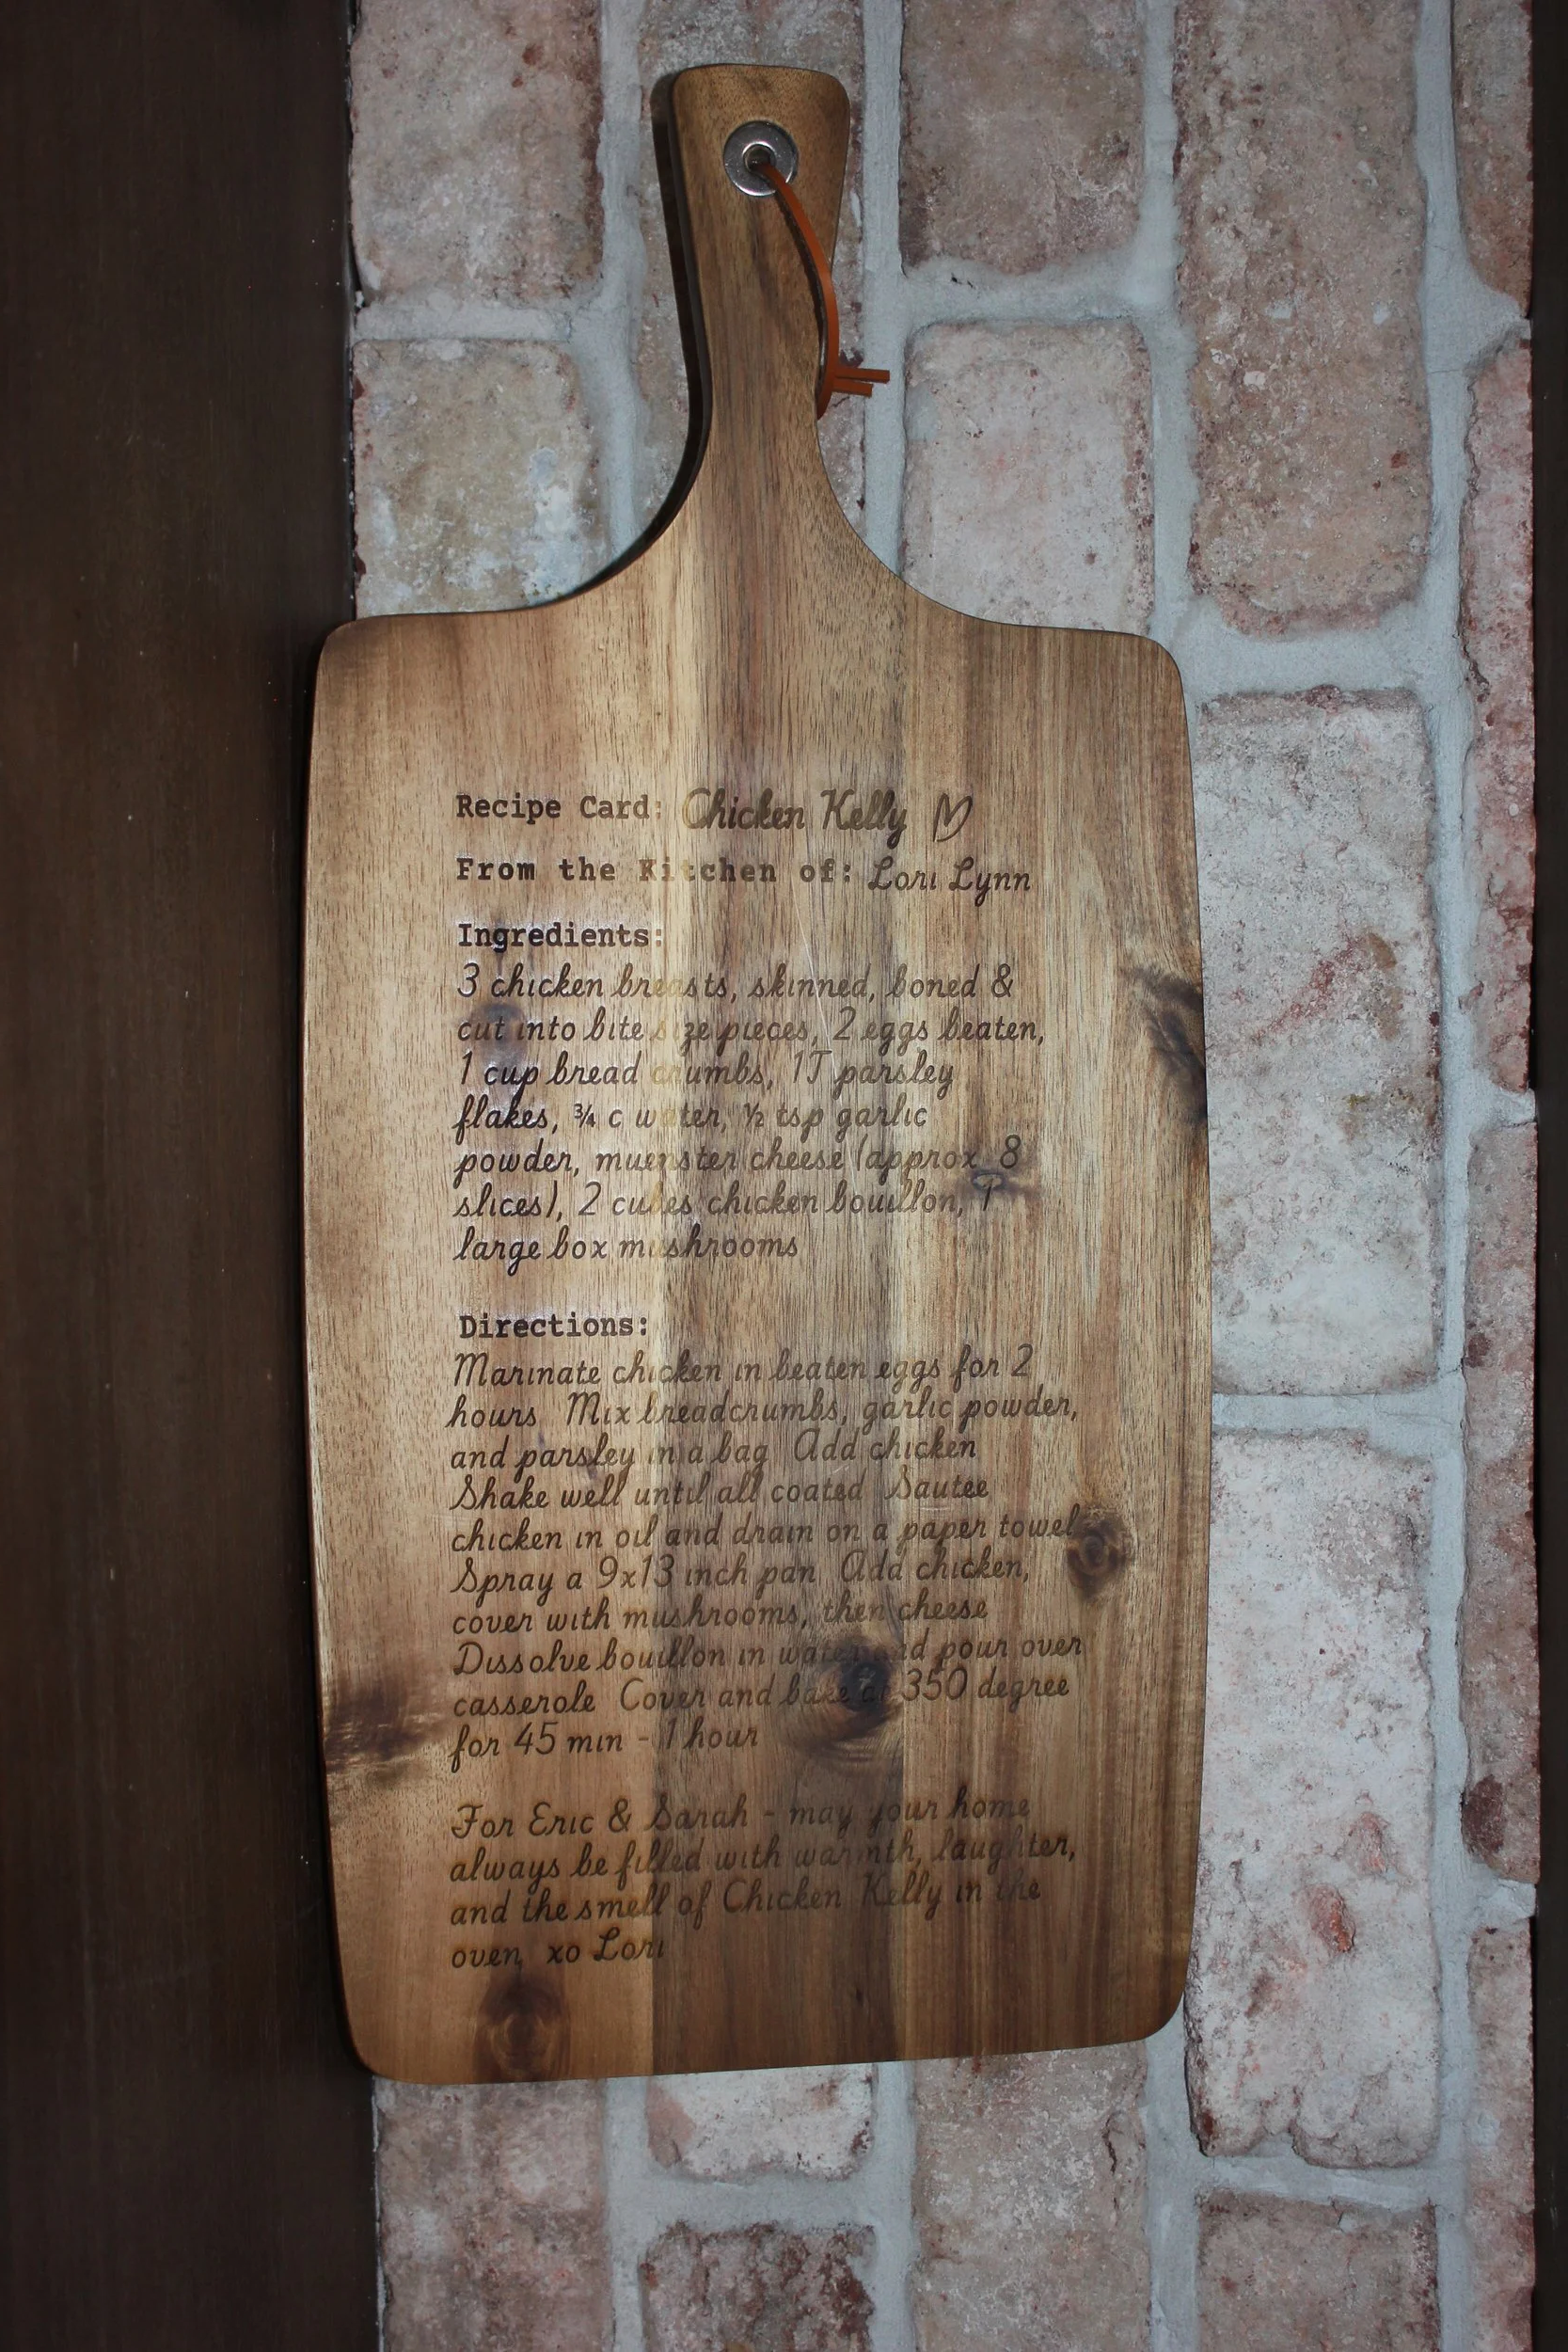 Recipe Card: Chicken Kelly ♡
From the Kitchen of: Lori Lynn
Ingredients:
3 chicken breasts, skinned, boned &
cut into bite size pieces, 2 eggs beaten,
1 cup bread crumbs, 1T parsley
flakes, ¾ c water, ½ tsp garlic
powder, muenster cheese (approx 8
slices), 2 cubes chicken bouillon, 1
large box mushrooms
Directions:
Marinate chicken in beaten eggs for 2
hours Mix breadcrumbs, garlic powder,
and parsley in a bag Add chicken
Shake well until all coated Sautee
chicken in oil and drain on a paper towel
Spray a 9x13 inch pan Add chicken,
cover with mushrooms, then cheese
Dissolve bouillon in water and pour over
casserole Cover and bake at 350 degree
for 45 min - 1 hour
For Eric & Sarah - may your home
always be filled with warmth, laughter,
and the smell of Chicken Kelly in the
oven xo Lori